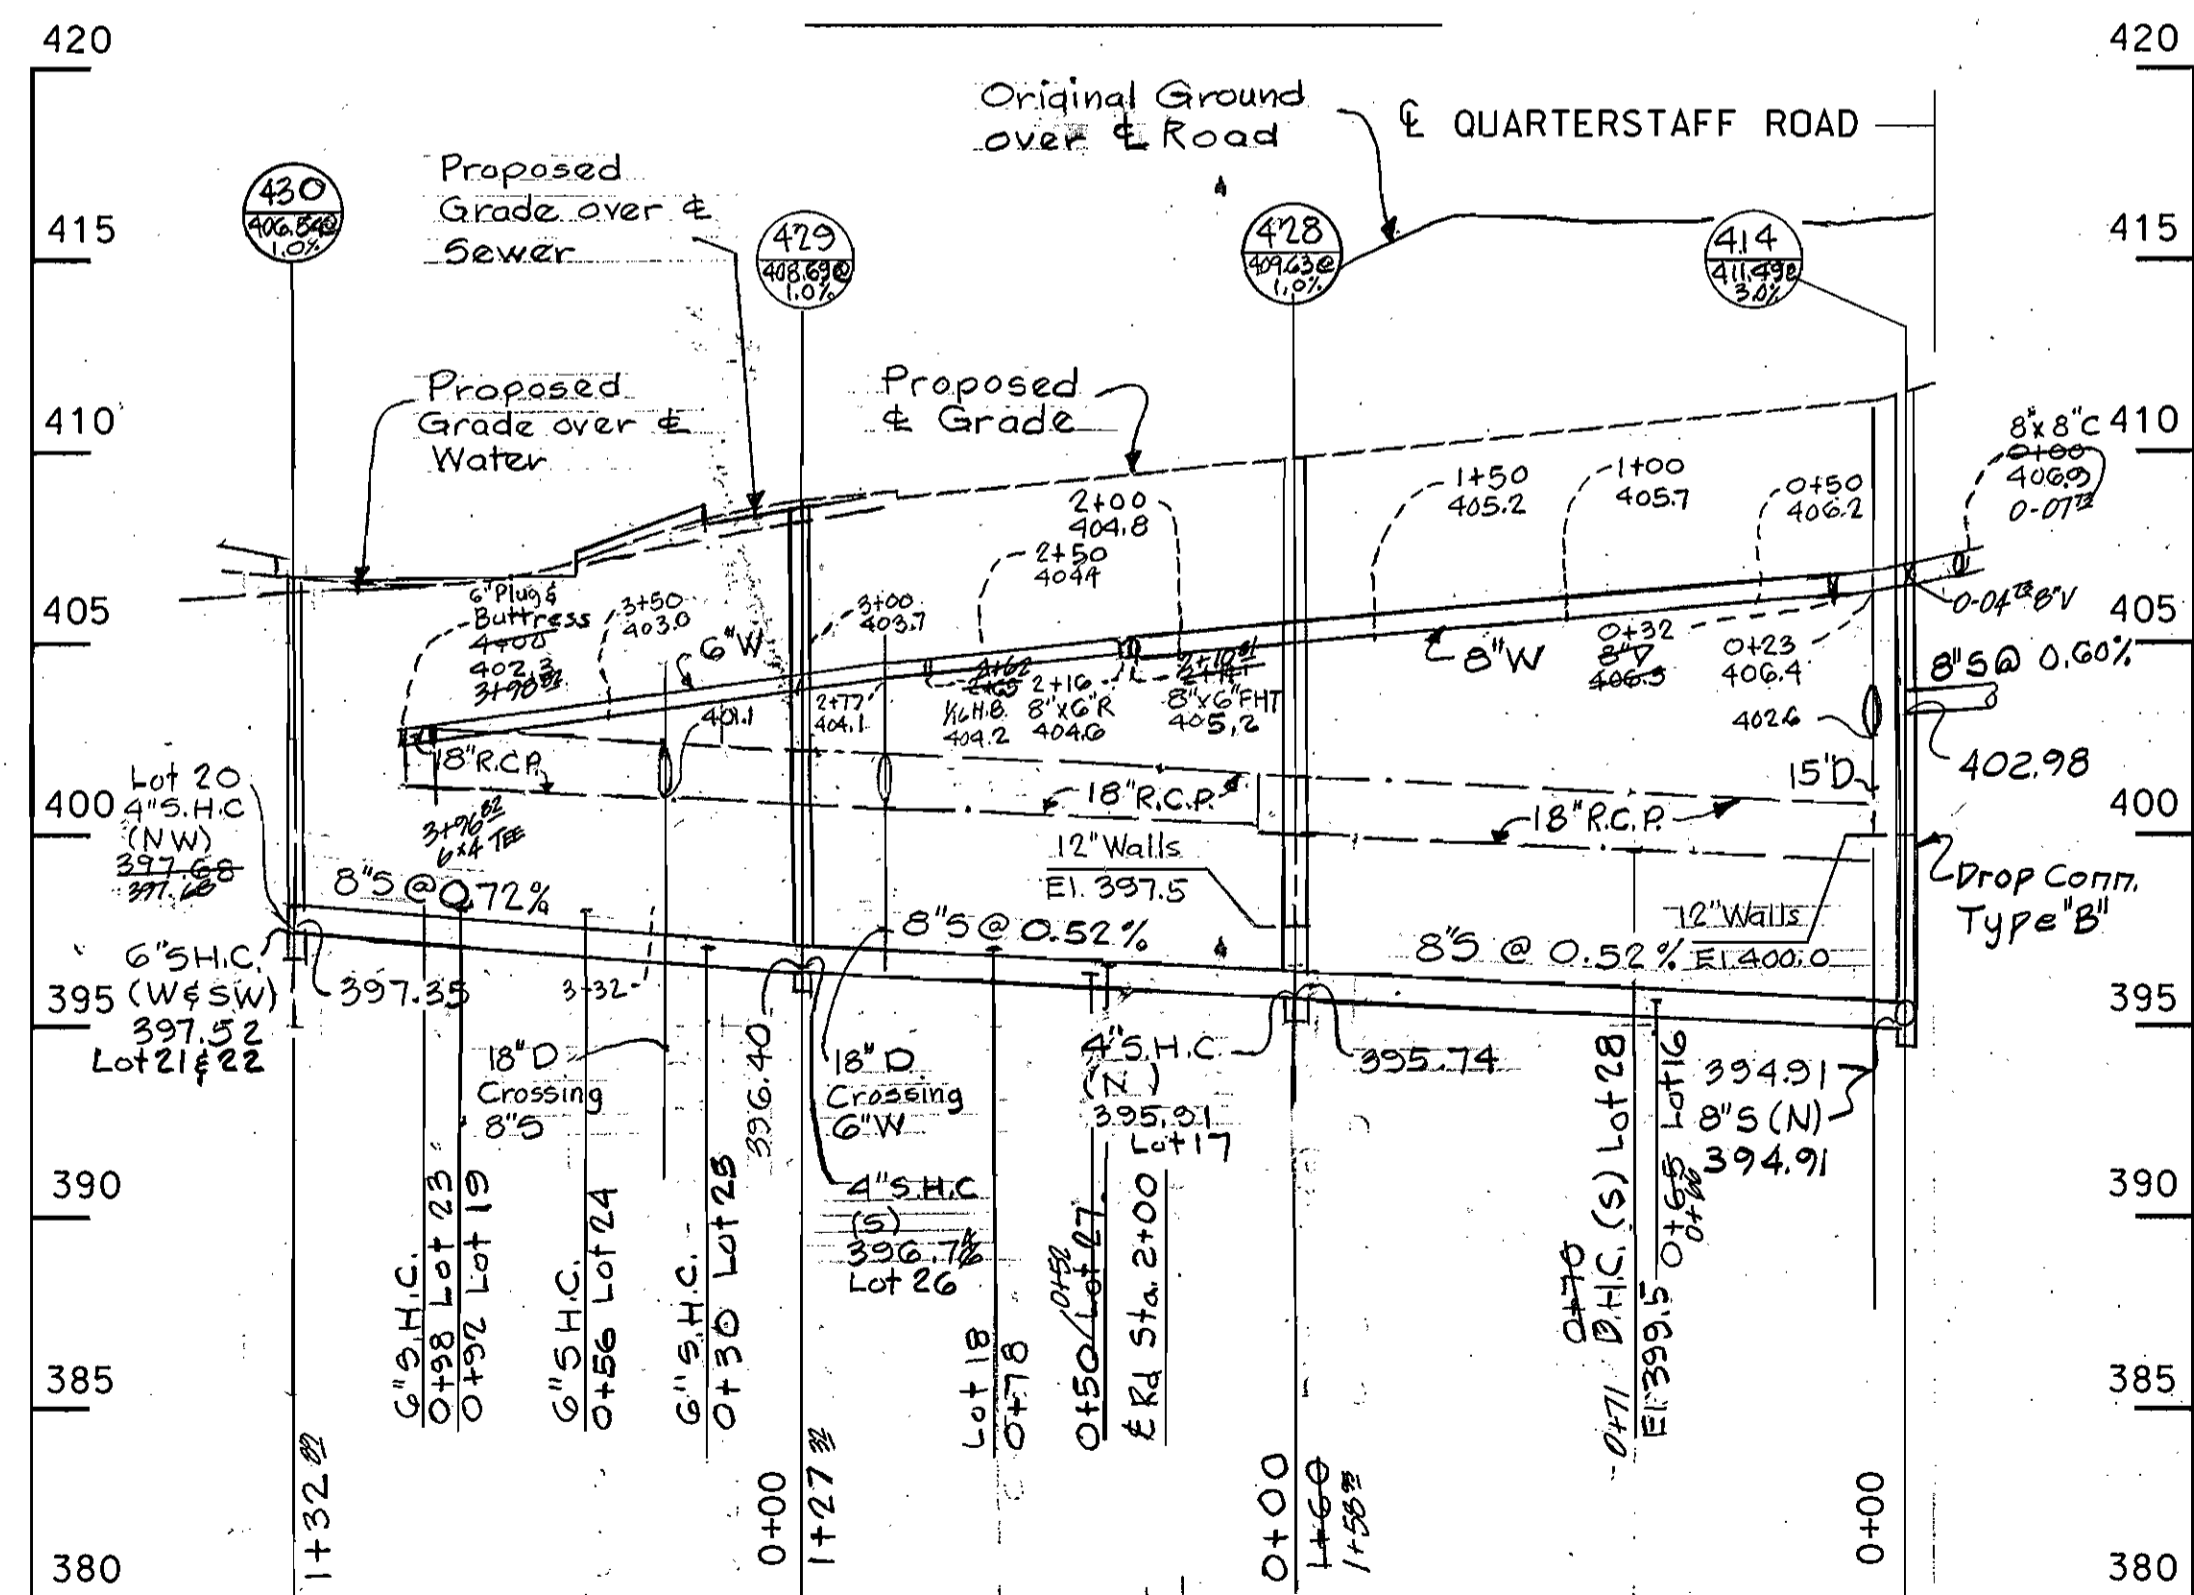 420
420
Original Ground
over ℄ Road
℄ QUARTERSTAFF ROAD
Proposed
Grade over ℄
Sewer
430
1.0%
429
408.69@
1.0%
428
409.63@
1.0%
414
411.49@
3.0%
415
415
Proposed
Grade over ℄
Water
Proposed
℄ Grade
410
410
8"x8"C
0+00
406.9
0-07
1+50
405.2
1+00
405.7
0+50
406.2
2+00
404.8
2+50
404.4
6"Plug &
Buttress
4+00
402.3
3+98
3+50
403.0
6"W
3+00
403.7
405
405
0-04 8"V
8"S@ 0.60%
8"W
0+32
8"V
406.3
0+23
406.4
2+77
404.1
2+62
2+65
1/16 H.B.
404.2
2+16
8"x6"R
404.6
8"x6"FHT
405.2
401.1
402.6
402.98
18"R.C.P.
18"R.C.P.
18"R.C.P.
15"D
Lot 20
4"S.H.C
(NW)
397.68
397.68
400
400
3+96 82
6x4 TEE
12"Walls
El. 397.5
12"Walls
El.400.0
Drop Conn.
Type "B"
8"S @ 0.72%
8"S @ 0.52%
8"S @ 0.52%
6"S.H.C.
(W&SW)
397.52
Lot 21 & 22
397.35
3+32
395
395
18"D
Crossing
8"S
396.40
18"D
Crossing
6"W
4"S.H.C.
(N)
395.91
Lot 17
395.74
394.91
8"S (N)
394.91
4"S.H.C
(S)
396.7
Lot 26
390
390
6"S.H.C.
0+98 Lot 23
0+92 Lot 19
6"S.H.C.
0+56 Lot 24
6"S.H.C.
0+30 Lot 25
Lot 18
0+78
0+52
0+50 Lot 27
℄ Rd Sta. 2+00
0+70
0+71 D.H.C. (S) Lot 28
El.399.5
0+65 Lot 16
0+66
385
385
1+32
0+00
1+27 32
0+00
1+60
1+58
0+00
380
380